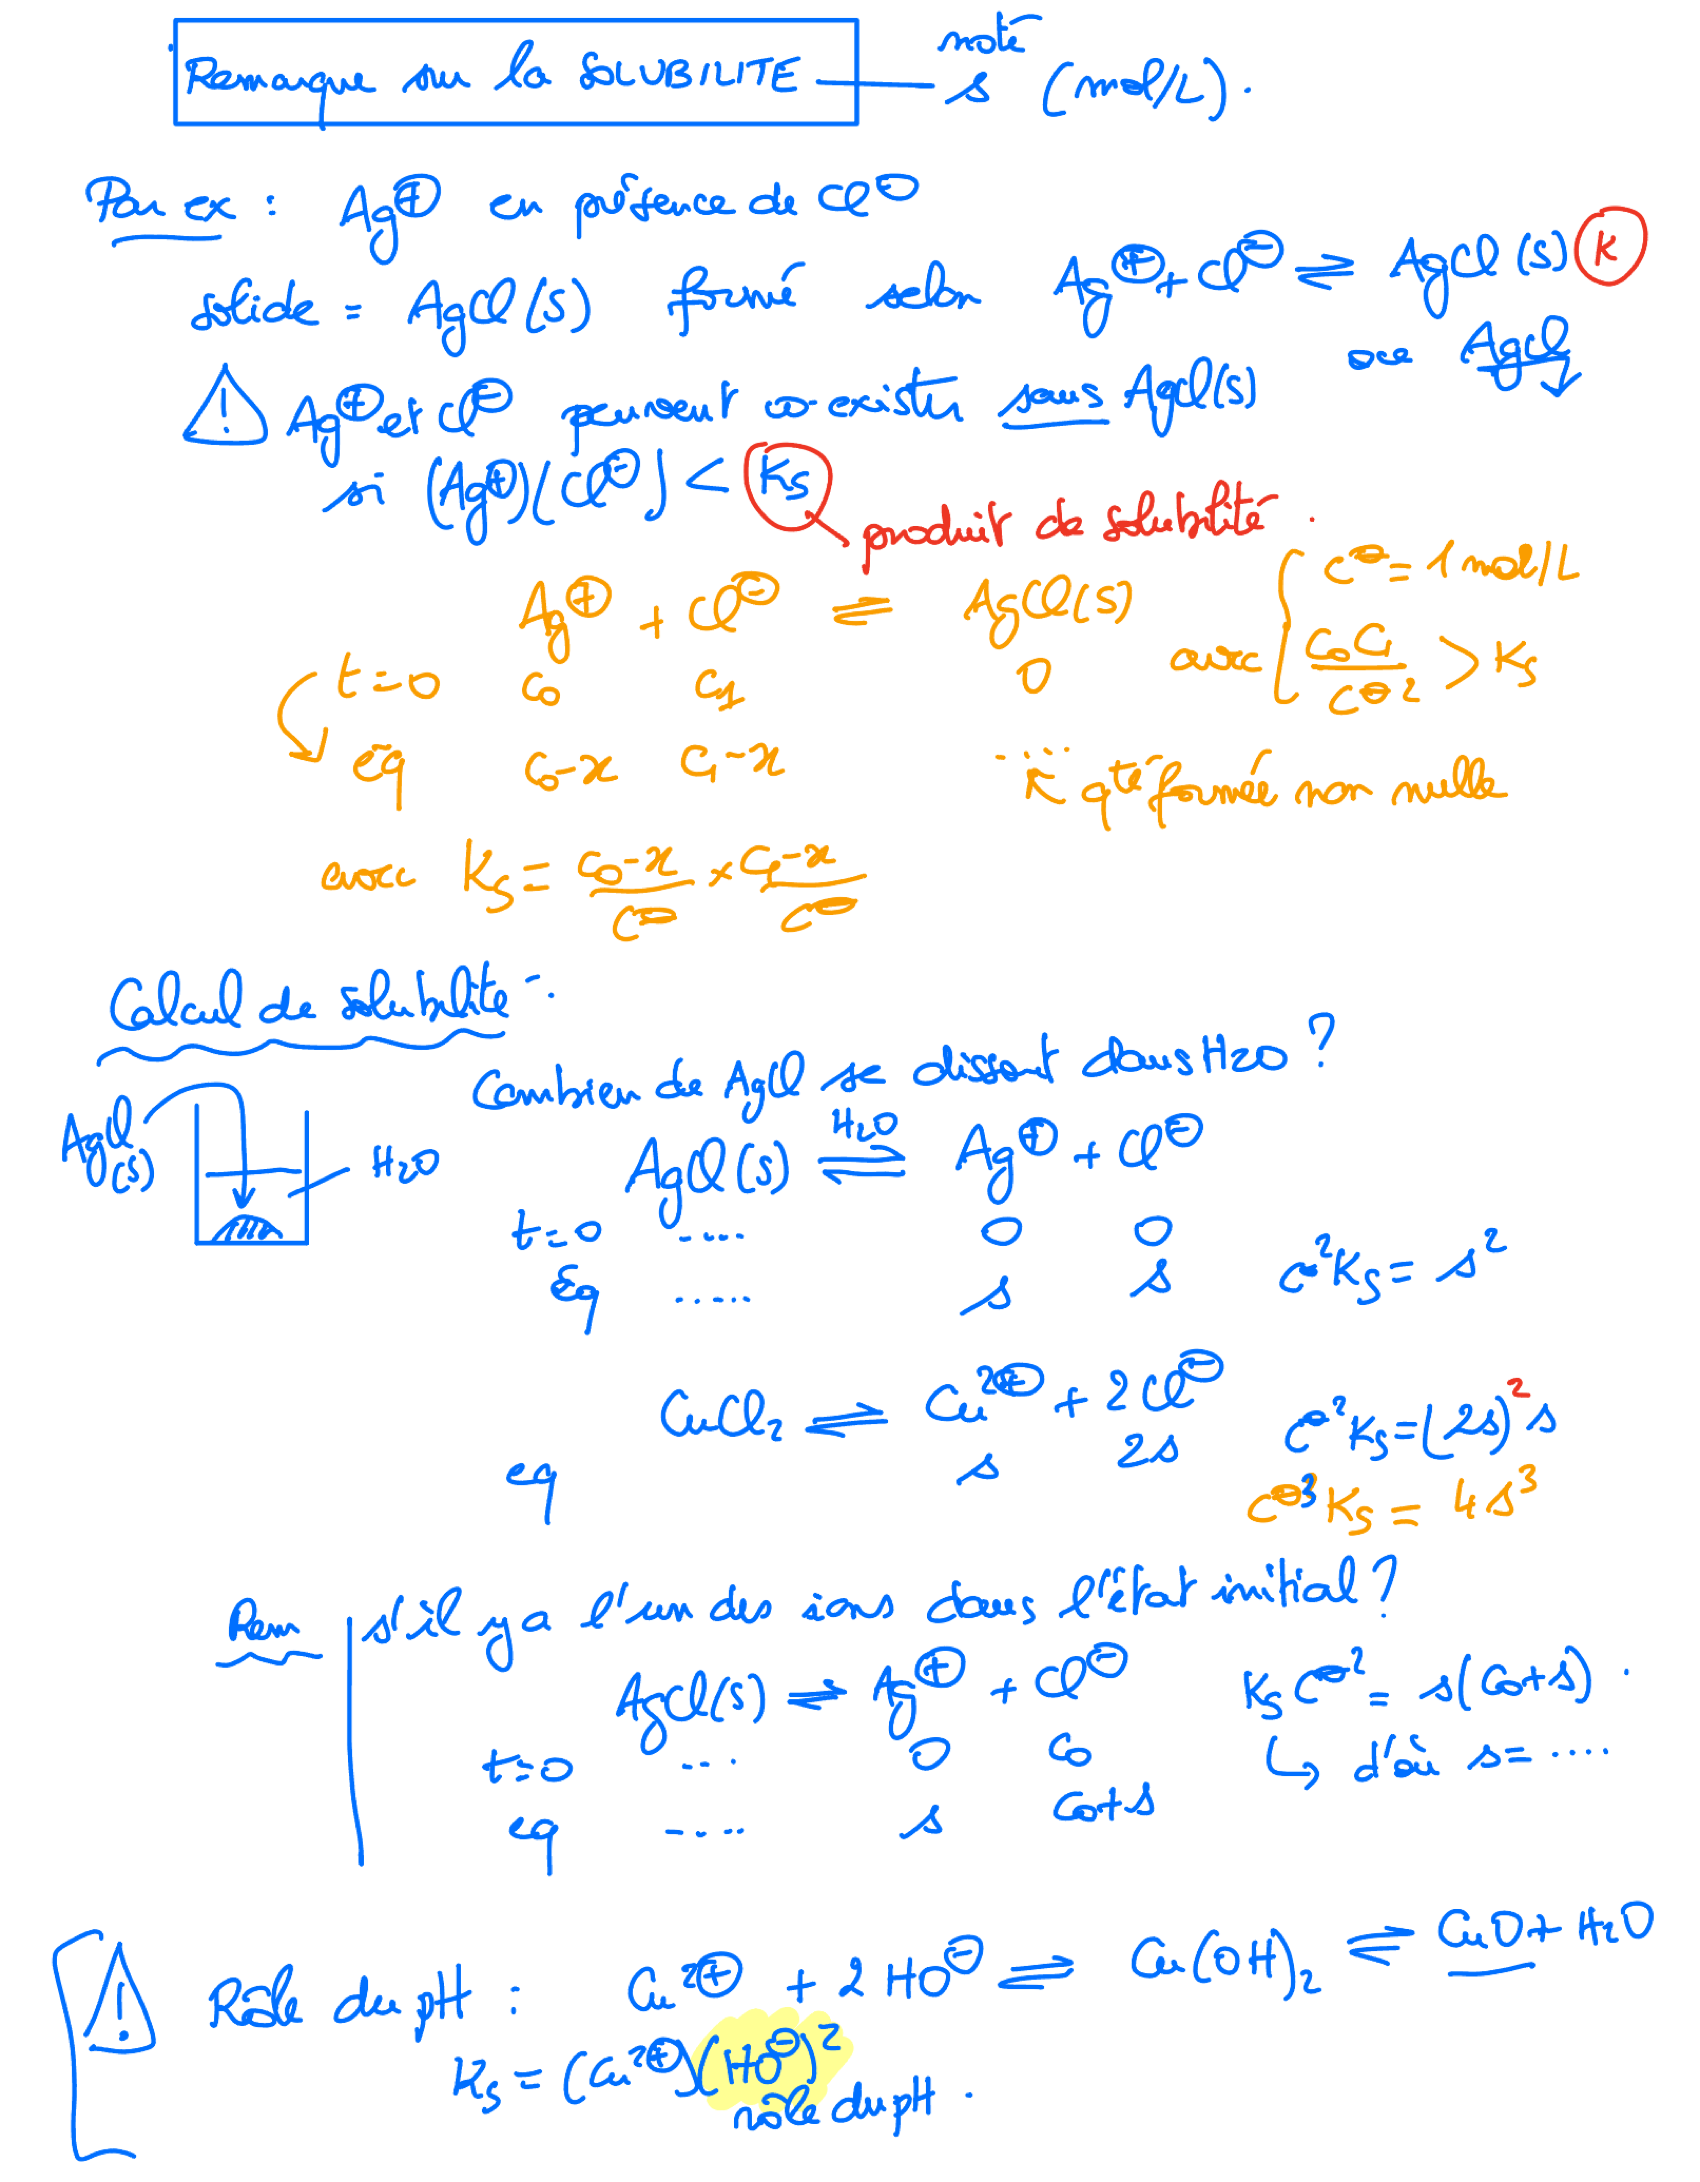 Remarque sur la SOLUBILITE — noté s (mol/L).
Par ex : Ag⊕ en présence de Cl⊖
solide = AgCl(s) formé selon Ag⊕ + Cl⊖ ⇌ AgCl(s) K
ou AgCl↓
! Ag⊕ et Cl⊖ peuvent co-exister sans AgCl(s)
si (Ag⊕)(Cl⊖) < Ks
produit de solubilité.
Ag⊕ + Cl⊖ ⇌ AgCl(s)
t=0 c0 c1 0 avec { c⊖ = 1 mol/L
c0c1/c⊖² > Ks
éq c0-x c1-x qté formée non nulle
avec Ks = c0-x/c⊖ × c1-x/c⊖
Calcul de solubilité :
Combien de AgCl se dissout dans H2O ?
AgCl(s) H2O
AgCl(s) ⇌ Ag⊕ + Cl⊖
H2O
t=0 .... 0 0
Eq ..... s s c⊖²Ks = s²
CuCl2 ⇌ Cu²⊕ + 2Cl⊖
eq s 2s c⊖²Ks = (2s)²s
c⊖³Ks = 4s³
Rem s'il y a l'un des ions dans l'état initial ?
AgCl(s) ⇌ Ag⊕ + Cl⊖ Ks c⊖² = s(c0+s).
t=0 ... 0 c0 ↳ d'où s = ....
eq .... s c0+s
! Rôle du pH : Cu²⊕ + 2HO⊖ ⇌ Cu(OH)2 ⇌ CuO + H2O
Ks = (Cu²⊕)(HO⊖)²
rôle du pH.